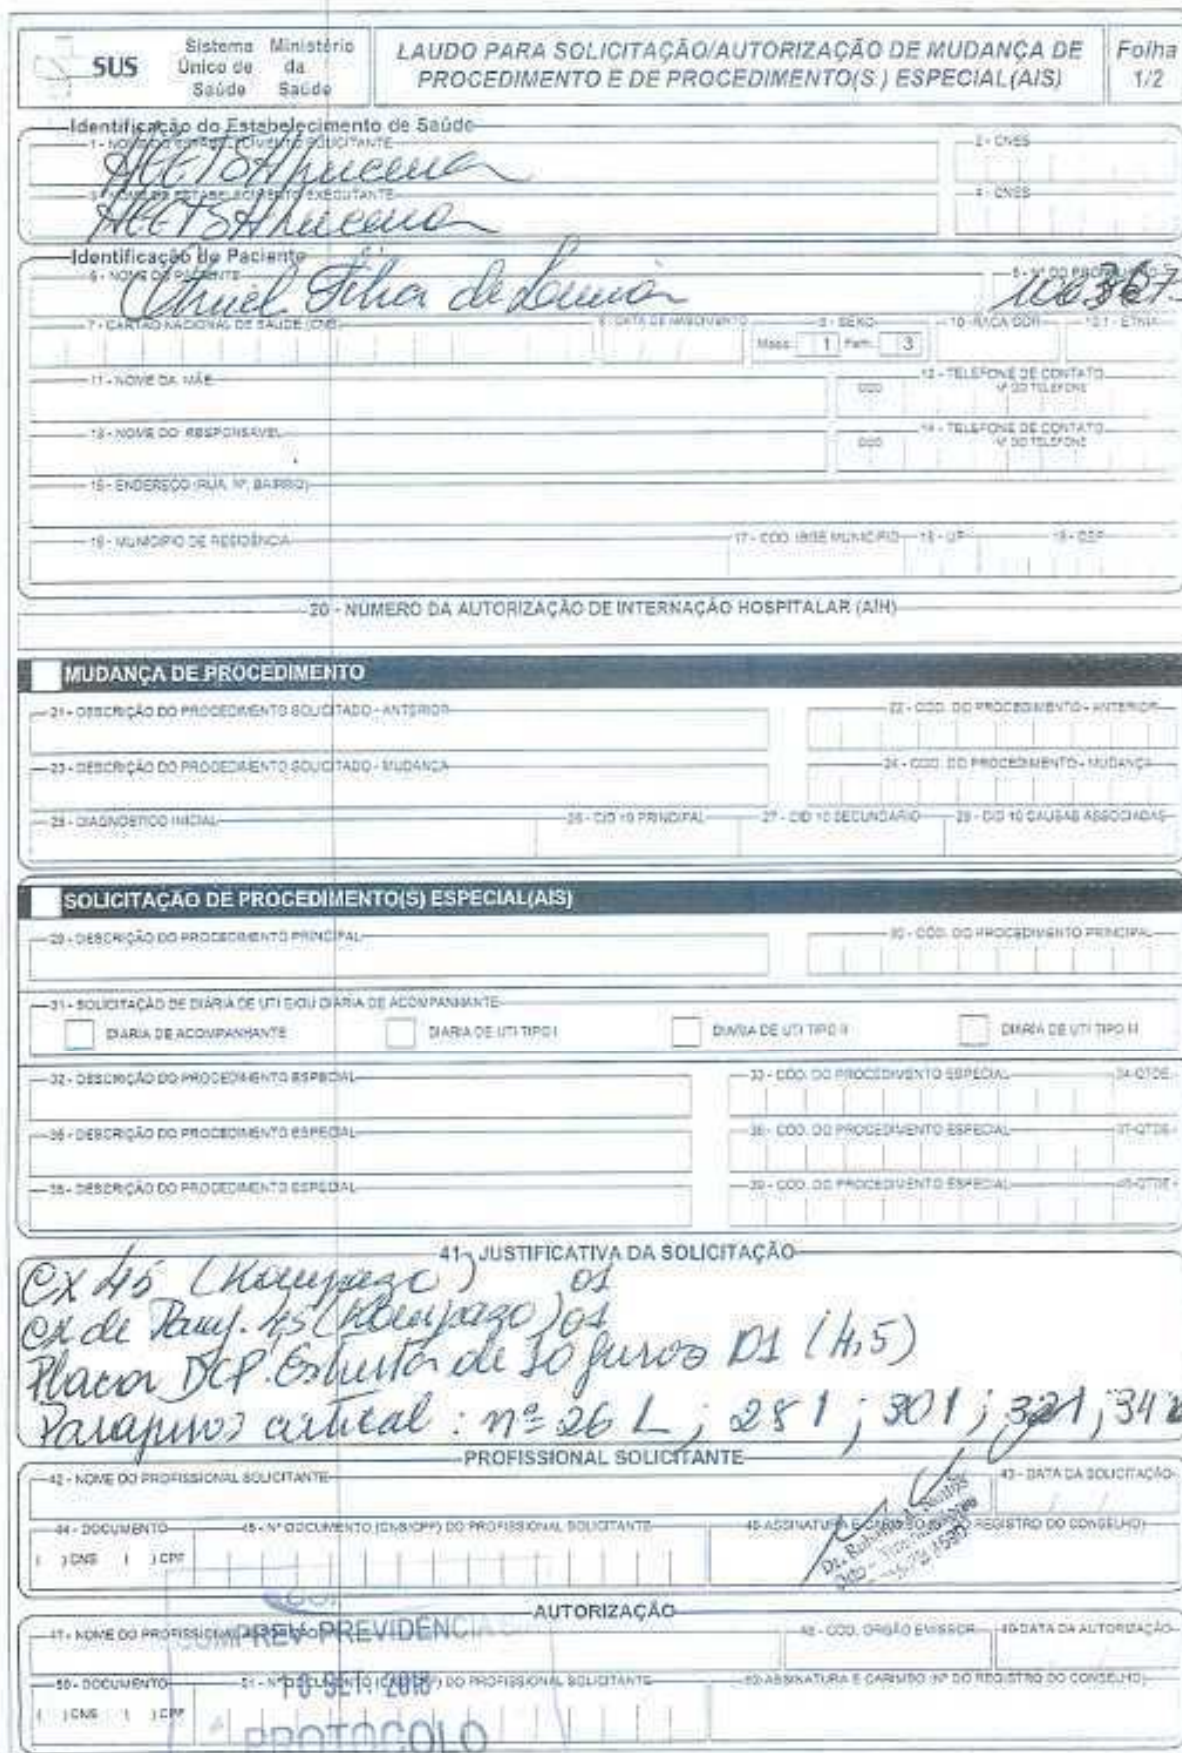 SUS
Sistema Único de Saúde
Ministério da Saúde
LAUDO PARA SOLICITAÇÃO/AUTORIZAÇÃO DE MUDANÇA DE
PROCEDIMENTO E DE PROCEDIMENTO(S) ESPECIAL(AIS)
Folha
1/2
Identificação do Estabelecimento de Saúde
1 - NOME DO ESTABELECIMENTO SOLICITANTE
2 - CNES
3 - NOME DO ESTABELECIMENTO EXECUTANTE
4 - CNES
Identificação do Paciente
5 - NOME DO PACIENTE
6 - Nº DO PRONTUÁRIO
7 - CARTÃO NACIONAL DE SAÚDE (CNS)
8 - DATA DE NASCIMENTO
9 - SEXO
Masc. 1 Fem. 3
10 - RAÇA/COR
10.1 - ETNIA
11 - NOME DA MÃE
12 - TELEFONE DE CONTATO
DDD Nº DO TELEFONE
13 - NOME DO RESPONSÁVEL
14 - TELEFONE DE CONTATO
DDD Nº DO TELEFONE
15 - ENDEREÇO (RUA, Nº, BAIRRO)
16 - MUNICÍPIO DE RESIDÊNCIA
17 - CÓD. IBGE MUNICÍPIO
18 - UF
19 - CEP
20 - NÚMERO DA AUTORIZAÇÃO DE INTERNAÇÃO HOSPITALAR (AIH)
MUDANÇA DE PROCEDIMENTO
21 - DESCRIÇÃO DO PROCEDIMENTO SOLICITADO - ANTERIOR
22 - CÓD. DO PROCEDIMENTO - ANTERIOR
23 - DESCRIÇÃO DO PROCEDIMENTO SOLICITADO - MUDANÇA
24 - CÓD. DO PROCEDIMENTO - MUDANÇA
25 - DIAGNÓSTICO INICIAL
26 - CID 10 PRINCIPAL
27 - CID 10 SECUNDÁRIO
28 - CID 10 CAUSAS ASSOCIADAS
SOLICITAÇÃO DE PROCEDIMENTO(S) ESPECIAL(AIS)
29 - DESCRIÇÃO DO PROCEDIMENTO PRINCIPAL
30 - CÓD. DO PROCEDIMENTO PRINCIPAL
31 - SOLICITAÇÃO DE DIÁRIA DE UTI E/OU DIÁRIA DE ACOMPANHANTE
DIARIA DE ACOMPANHANTE
DIARIA DE UTI TIPO I
DIARIA DE UTI TIPO II
DIARIA DE UTI TIPO III
32 - DESCRIÇÃO DO PROCEDIMENTO ESPECIAL
33 - CÓD. DO PROCEDIMENTO ESPECIAL
34-QTDE
35 - DESCRIÇÃO DO PROCEDIMENTO ESPECIAL
36 - CÓD. DO PROCEDIMENTO ESPECIAL
37-QTDE
38 - DESCRIÇÃO DO PROCEDIMENTO ESPECIAL
39 - CÓD. DO PROCEDIMENTO ESPECIAL
40-QTDE
41 - JUSTIFICATIVA DA SOLICITAÇÃO
CX 4,5 01
CX de 4,5 01
Placa DCP. Estreita de 10 furos 01 (4,5)
Parafuso cortical : nº 26 1 ; 28 1 ; 30 1 ; 32 1 ; 34
PROFISSIONAL SOLICITANTE
42 - NOME DO PROFISSIONAL SOLICITANTE
43 - DATA DA SOLICITAÇÃO
44 - DOCUMENTO
( ) CNS ( ) CPF
45 - Nº DOCUMENTO (CNS/CPF) DO PROFISSIONAL SOLICITANTE
46-ASSINATURA E CARIMBO (Nº DO REGISTRO DO CONSELHO)
AUTORIZAÇÃO
47 - NOME DO PROFISSIONAL
48 - COD. ORGÃO EMISSOR
49-DATA DA AUTORIZAÇÃO
COMPREV PREVIDENCIA
50 - DOCUMENTO
( ) CNS ( ) CPF
51 - Nº DOCUMENTO (CNS/CPF) DO PROFISSIONAL SOLICITANTE
52-ASSINATURA E CARIMBO (Nº DO REGISTRO DO CONSELHO)
SET.
PROTOCOLO